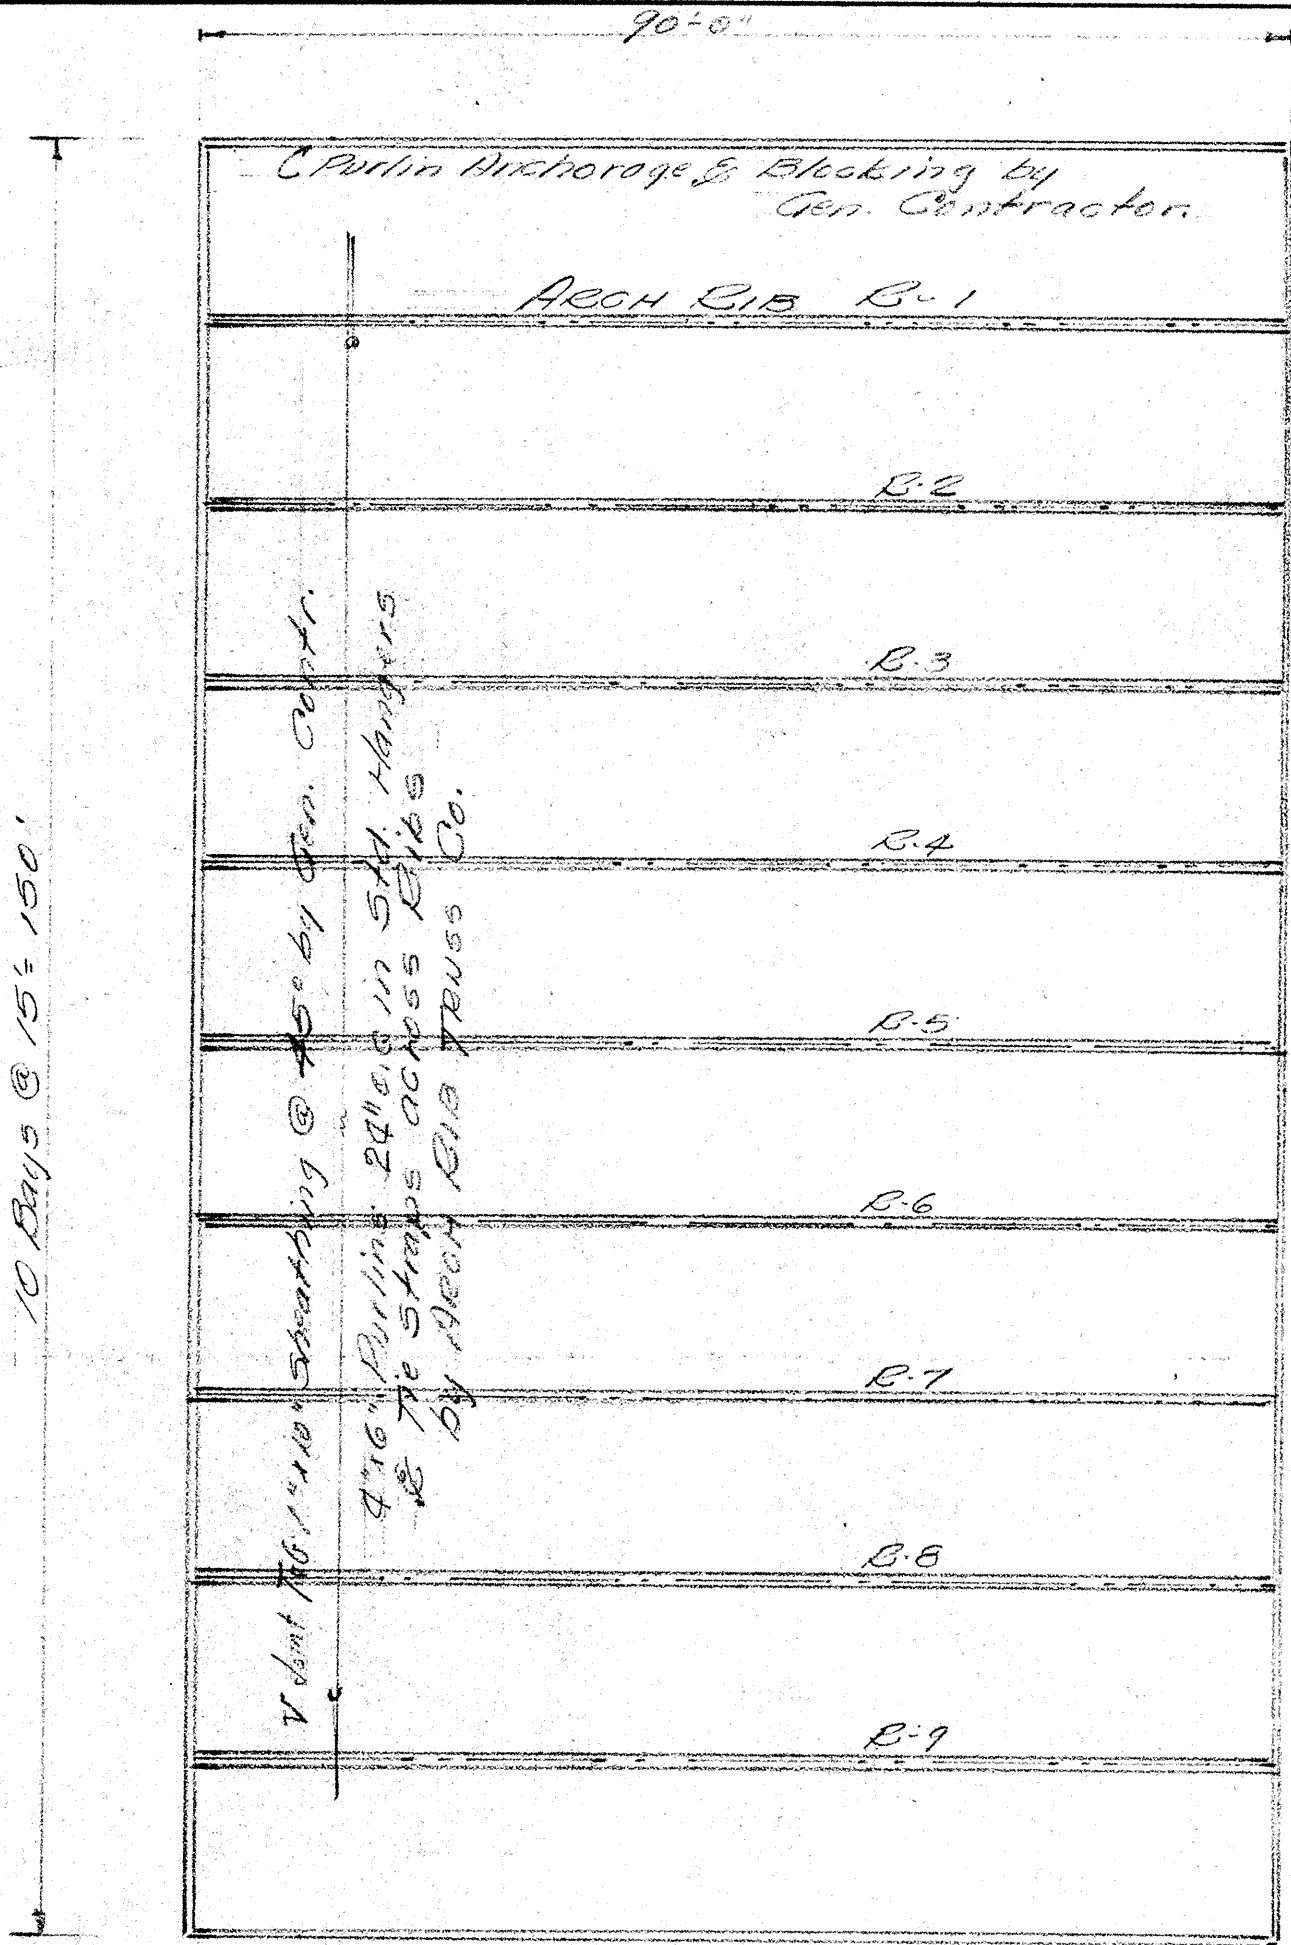 90'-0"
Purlin Anchorage & Blocking by
Gen. Contractor.
ARCH RIB R-1
R-2
R-3
R-4
R-5
R-6
R-7
R-8
R-9
10 Bays @ 15'= 150'
V Joint T&G 1"x10" Sheathing @ 45° by Gen. Contr.
4"x6" Purlins 24" c.c in Std. Hangers
& Tie Straps across Ribs
by ARCH RIB TRUSS Co.